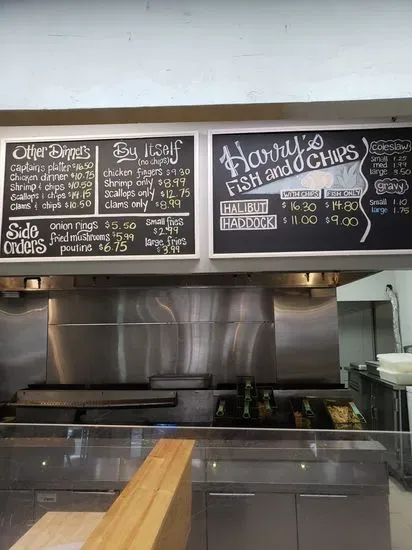 Other Dinners
Captain's platter $16.50
Chicken dinner $10.75
Shrimp & chips $10.50
Scallops & chips $14.15
Clams & chips $10.50
By Itself
(no chips)
chicken fingers $9.30
Shrimp only $8.99
Scallops only $12.75
clams only $8.99
Side Orders
onion rings $5.50
fried mushrooms $5.99
poutine $6.75
Small fries
$2.99
large fries
$3.99
Harry's
FISH and CHIPS
WITH CHIPS FISH ONLY
HALIBUT $16.30 $14.80
HADDOCK $11.00 $9.00
Coleslaw
Small 1.25
med 1.99
large 3.50
gravy
Small 1.10
large 1.75